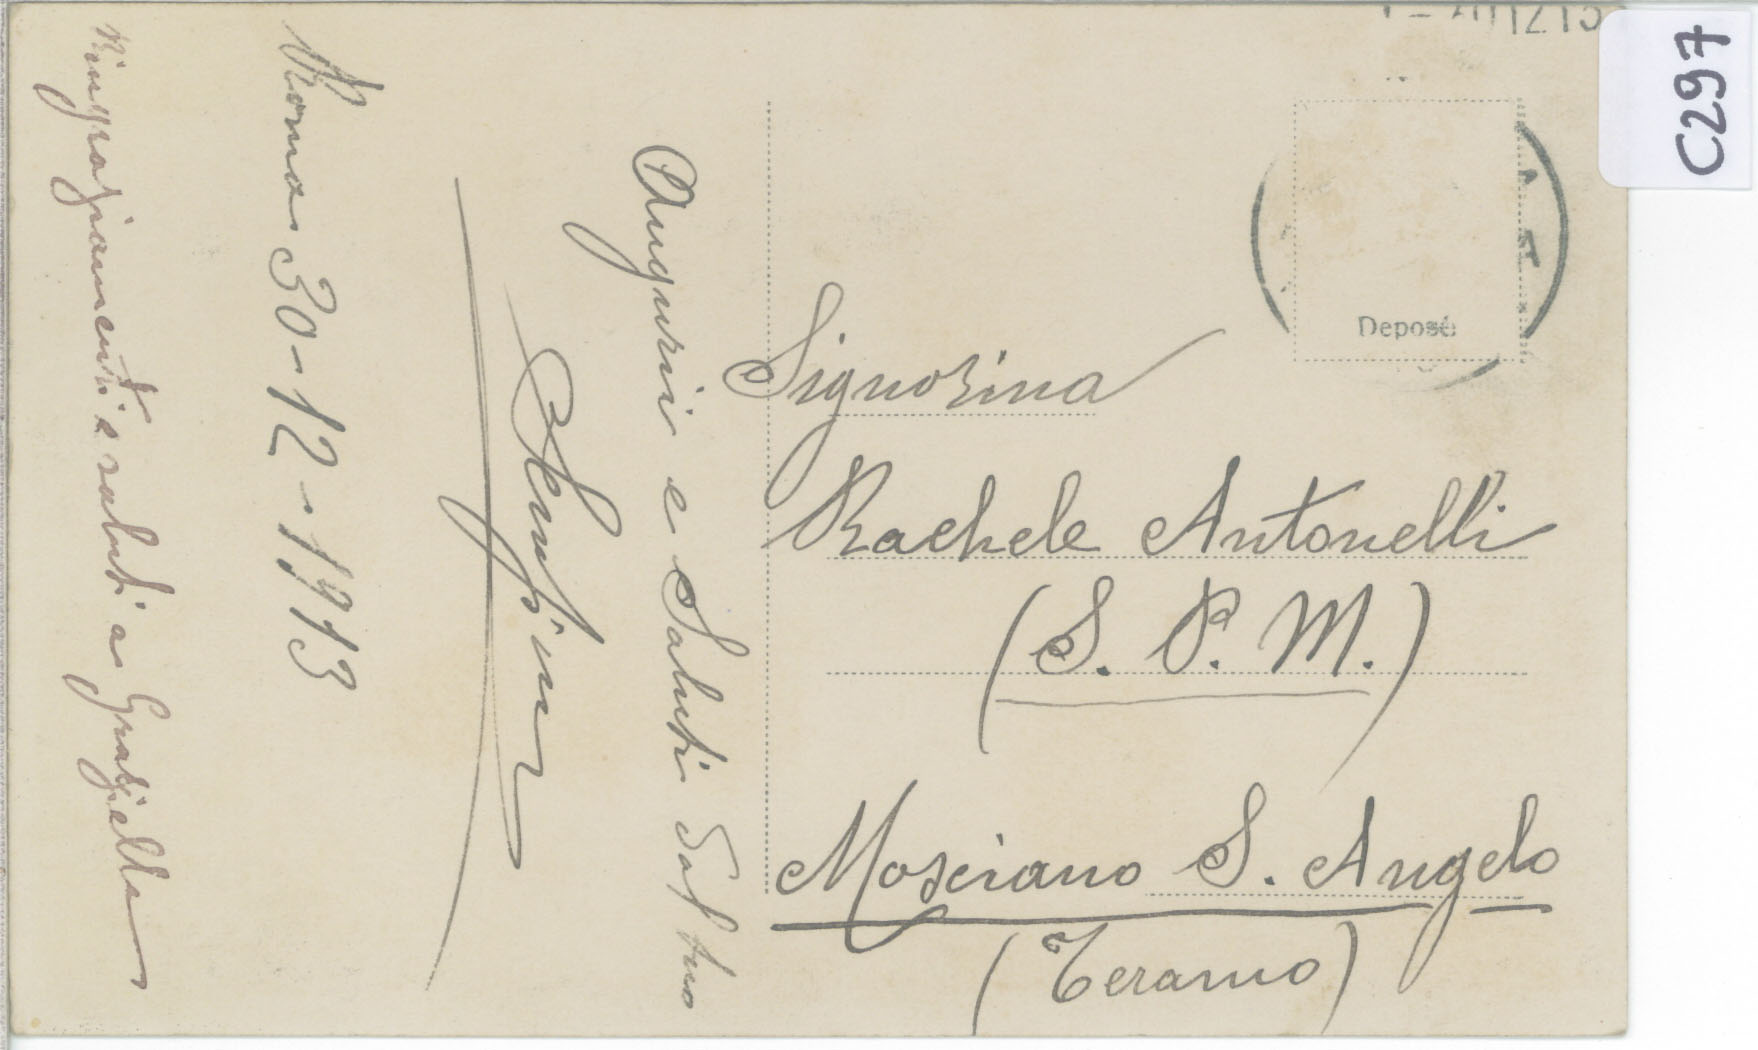 C297
Deposé
Signorina
Rachele Antonelli
(S. P. M.)
Mosciano S. Angelo
(Teramo)
Auguri e Saluti dal tuo
Roma 30-12-1913
Ringraziamenti e saluti a Graziella